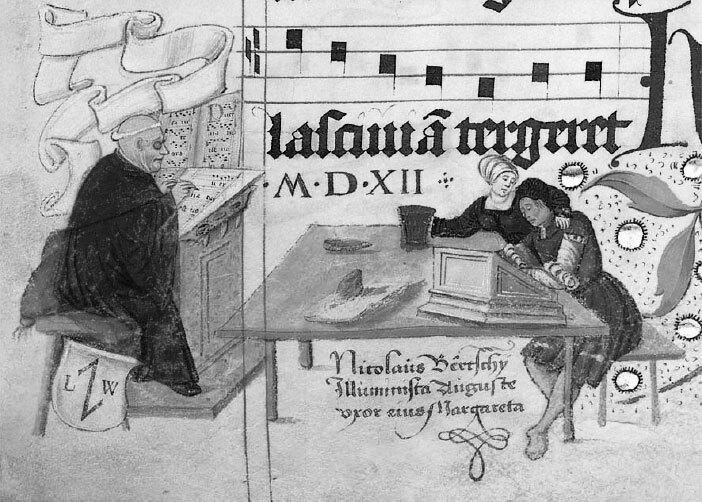 lasciuiā tergeret
·M·D·XII·
Nicolaüs Bertschy
Illuminista Auguste
vxor eius Margareta
L W